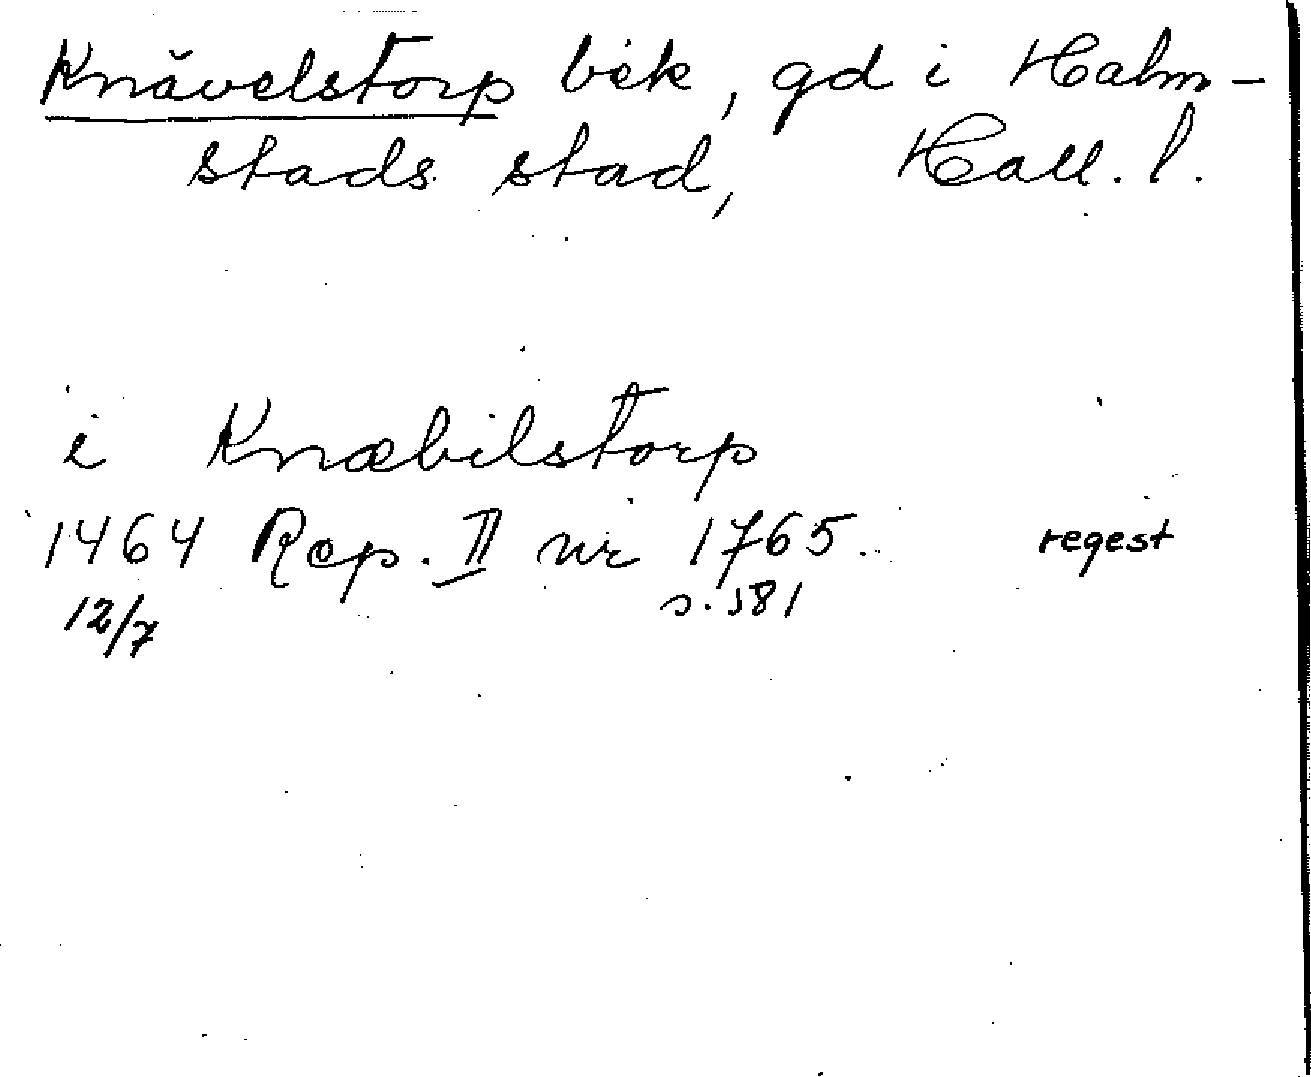 Knävelstorp bek, gd i Halm-
stads stad, Hall. l.
i Knæbilstorp
1464 Rep. II nr 1765. regest
12/7 s. 381